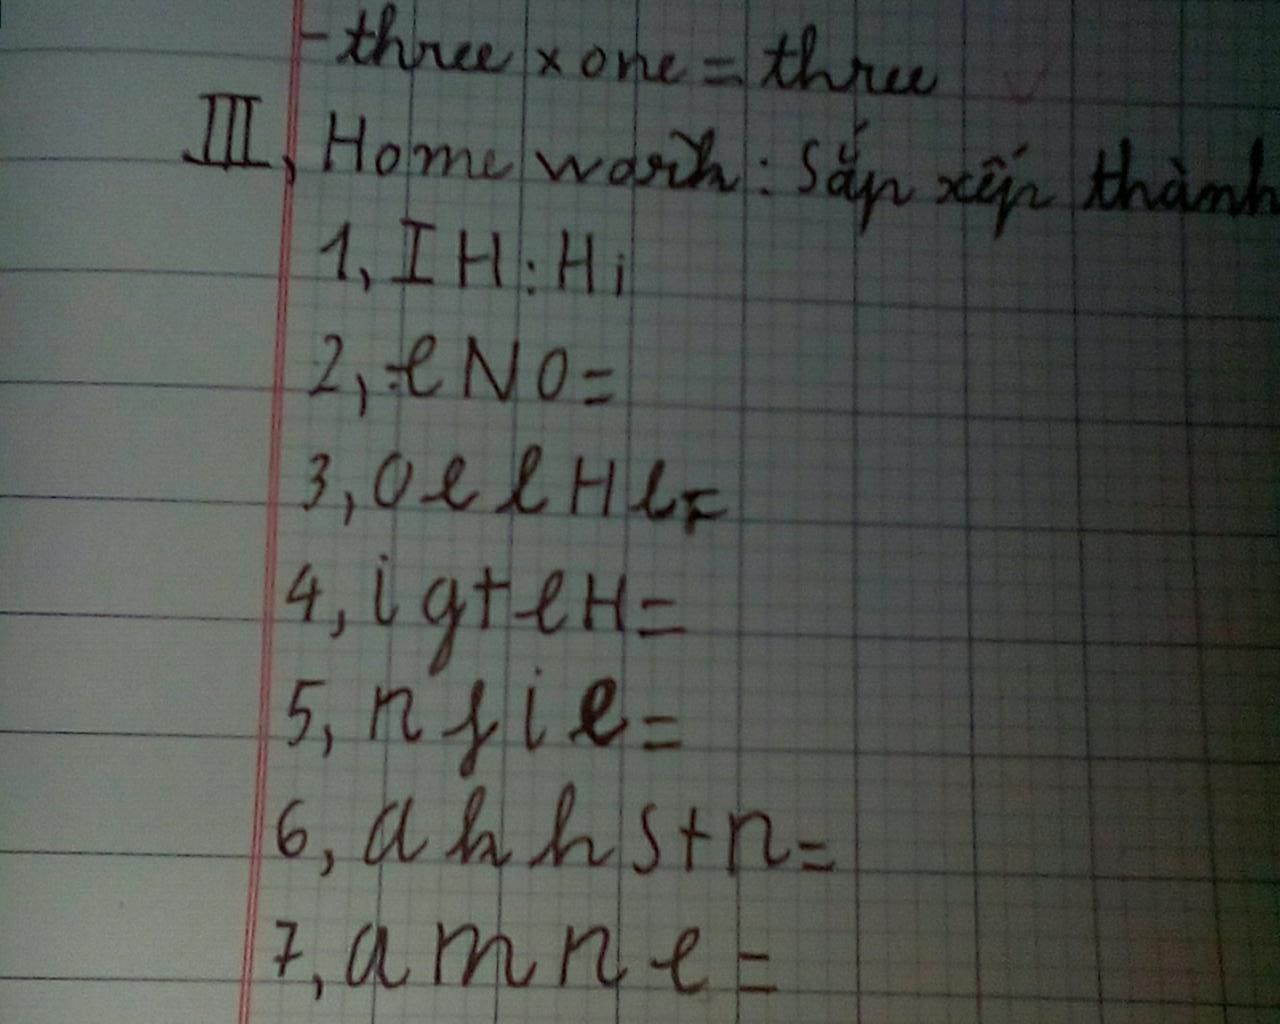 - three x one = three
III, Home work: Sắp xếp thành
1, IH: Hi
2, eNO=
3, OelHl=
4, igteH=
5, nfie=
6, akhstn=
7, amne=